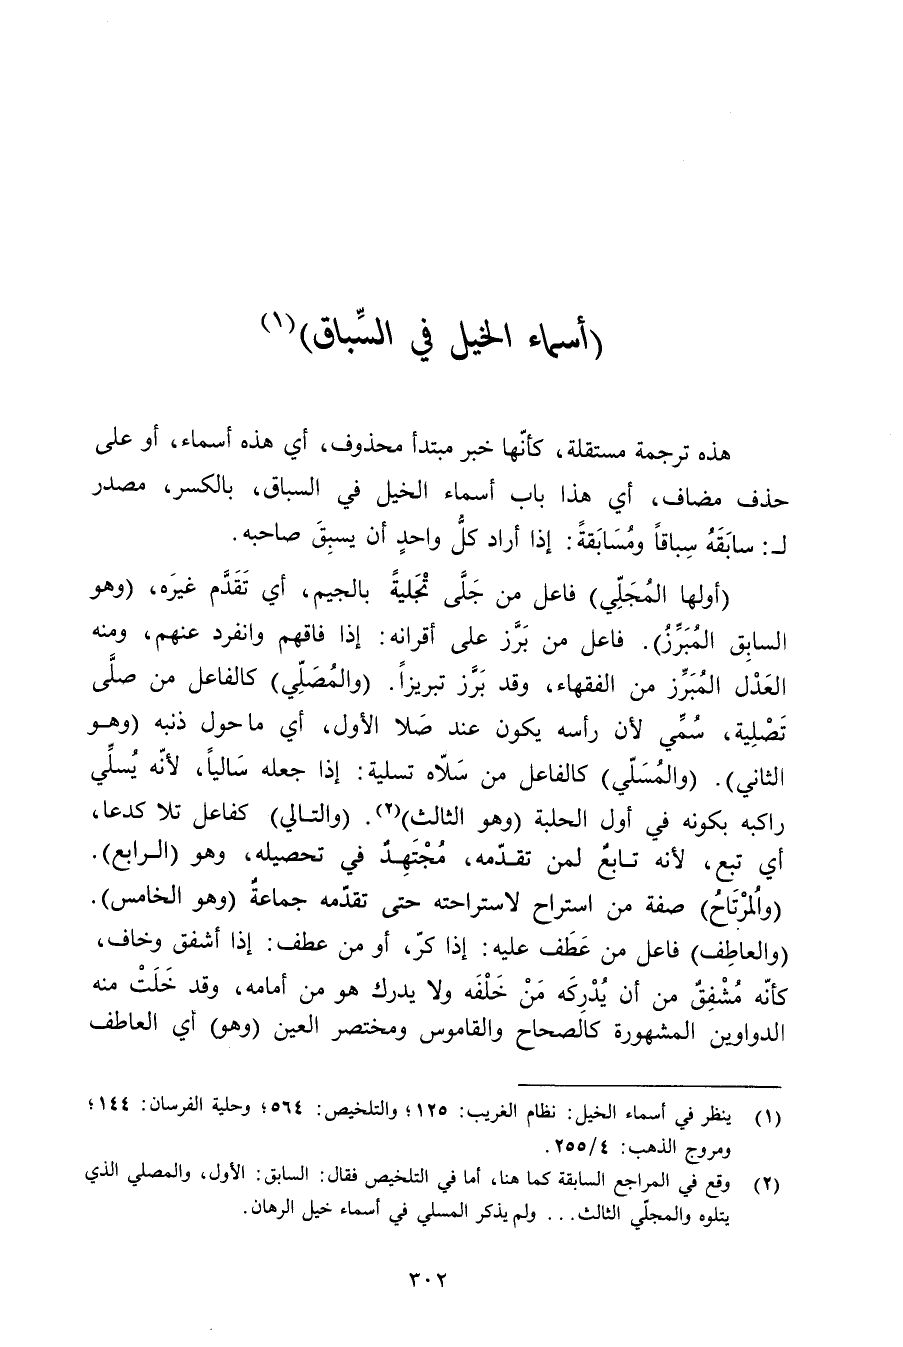 (أسماء الخيل في السِّباق)(١)
هذه ترجمة مستقلة، كأنّها خبر مبتدأ محذوف، أي هذه أسماء، أو على
حذف مضاف، أي هذا باب أسماء الخيل في السباق، بالكسر، مصدر
لـ: سابَقَهُ سِباقاً ومُسَابَقةً: إذا أراد كلُّ واحدٍ أن يسبِقَ صاحبه.
(أولها المُجَلِّي) فاعل من جَلَّى تَجْليةً بالجيم، أي تَقَدَّم غيرَه، (وهو
السابق المُبَرِّزُ). فاعل من بَرَّز على أقرانه: إذا فاقهم وانفرد عنهم، ومنه
العَدْل المُبَرِّز من الفقهاء، وقد بَرَّز تبريزاً. (والمُصَلِّي) كالفاعل من صلَّى
تَصْلِية، سُمِّي لأن رأسه يكون عند صَلا الأول، أي ماحول ذنبه (وهو
الثاني). (والمُسَلّي) كالفاعل من سَلاّه تسلية: إذا جعله سَالياً، لأنّه يُسلِّي
راكبه بكونه في أول الحلبة (وهو الثالث)(٢). (والتالي) كفاعل تلا كدعا،
أي تبع، لأنه تابعٌ لمن تقدّمه، مُجْتَهِدٌ في تحصيله، وهو (الرابع).
(والمُرْتَاحُ) صفة من استراح لاستراحته حتى تقدّمه جماعةٌ (وهو الخامس).
(والعاطِف) فاعل من عَطَف عليه: إذا كرّ، أو من عطف: إذا أشفق وخاف،
كأنّه مُشْفِقٌ من أن يُدْرِكَه مَنْ خَلْفَه ولا يدرك هو من أمامه، وقد خَلَتْ منه
الدواوين المشهورة كالصحاح والقاموس ومختصر العين (وهو) أي العاطف
(١) ينظر في أسماء الخيل: نظام الغريب: ١٢٥؛ والتلخيص: ٥٦٤؛ وحلية الفرسان: ١٤٤؛
ومروج الذهب: ٢٥٥/٤.
(٢) وقع في المراجع السابقة كما هنا، أما في التلخيص فقال: السابق: الأول، والمصلي الذي
يتلوه والمجلّي الثالث... ولم يذكر المسلي في أسماء خيل الرهان.
٣٠٢